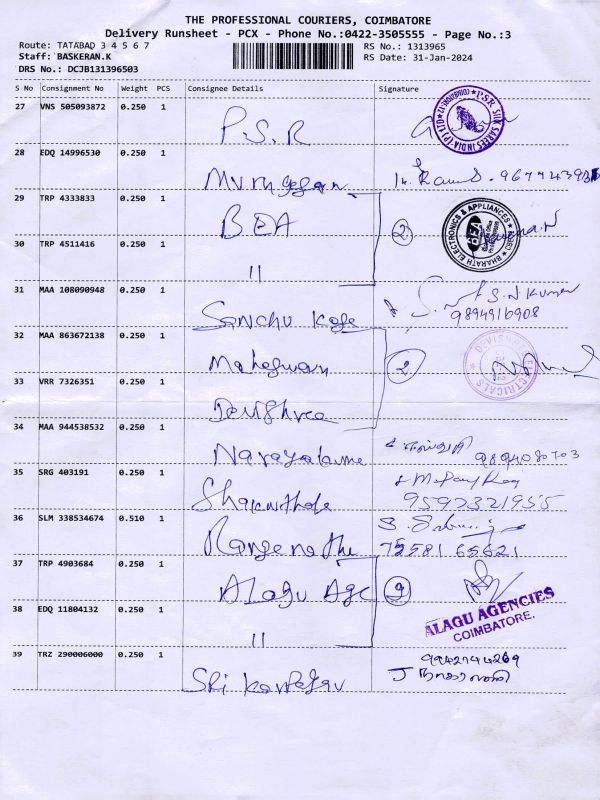 THE PROFESSIONAL COURIERS, COIMBATORE
Delivery Runsheet - PCX - Phone No.:0422-3505555 - Page No.:3
Route: TATABAD 3 4 5 6 7
RS No.: 1313965
Staff: BASKERAN.K
RS Date: 31-Jan-2024
DRS No.: DCJB131396503
S No Consignment No Weight PCS Consignee Details Signature
27 VNS 505093872 0.250 1
P.S.R
PSR SILK SAREES INDIA (P) LTD
28 EDQ 14996530 0.250 1
Murugesan
29 TRP 4333833 0.250 1
BEA 2
BHARATH ELECTRONICS & APPLIANCES
BEA
30 TRP 4511416 0.250 1
"
31 MAA 108090948 0.250 1
S.N Kumar
9894916908
32 MAA 863672138 0.250 1
Maheswari 2
33 VRR 7326351 0.250 1
Devishree
DEVISHREE ELECTRICALS
34 MAA 944538532 0.250 1
9894080703
35 SRG 403191 0.250 1
9597321955
36 SLM 338534674 0.510 1
75581 65621
37 TRP 4903684 0.250 1
Alagu Age
ALAGU AGENCIES
COIMBATORE.
38 EDQ 11804132 0.250 1
"
39 TRZ 290006000 0.250 1
9942744269
Sri